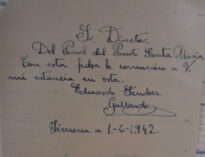 S. Director
Del Penal del Puerto Santa Maria
Con esta fecha le comunico a V.
mi estancia en esta.
Eduardo Sánchez
Gallardo
Jimena a 1-6-1942.